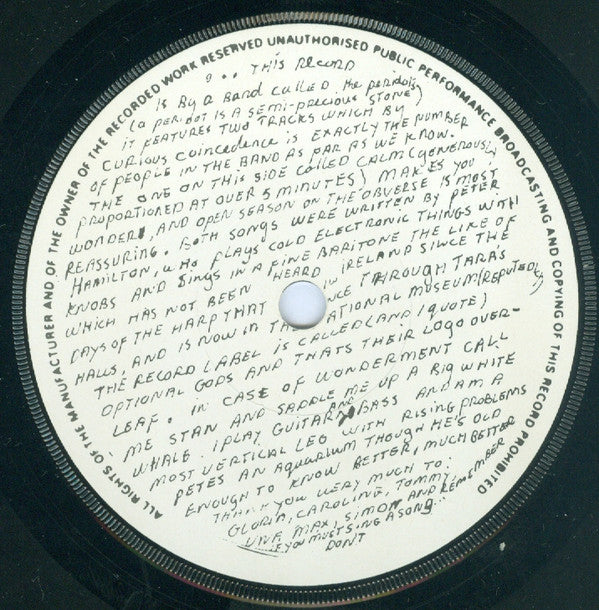 ALL RIGHTS OF THE MANUFACTURER AND OF THE OWNER OF THE RECORDED WORK RESERVED UNAUTHORISED PUBLIC PERFORMANCE BROADCASTING AND COPYING OF THIS RECORD PROHIBITED
? .. THIS RECORD
IS BY A BAND CALLED the peridots
(A PERIDOT IS A SEMI-PRECIOUS STONE)
IT FEATURES TWO TRACKS WHICH BY
CURIOUS COINCEDENCE IS EXACTLY THE NUMBER
OF PEOPLE IN THE BAND AS FAR AS WE KNOW.
THE ONE ON THIS SIDE CALLED CALM (GENEROUSLY
PROPORTIONED AT OVER 5 MINUTES) MAKES YOU
WONDER, AND OPEN SEASON ON THE OBVERSE IS MOST
REASSURING. BOTH SONGS WERE WRITTEN BY PETER
HAMILTON, WHO PLAYS COLD ELECTRONIC THINGS WITH
KNOBS AND SINGS IN A FINE BARITONE THE LIKE OF
WHICH HAS NOT BEEN HEARD IN IRELAND SINCE THE
DAYS OF THE HARP THAT ONCE THROUGH TARA'S
HALLS, AND IS NOW IN THE NATIONAL MUSEUM (REPUTEDLY)
THE RECORD LABEL IS CALLED (AND I QUOTE)
OPTIONAL GODS AND THATS THEIR LOGO OVER-
LEAF. IN CASE OF WONDERMENT CALL
ME STAN AND SADDLE ME UP A BIG WHITE
WHALE. I PLAY GUITAR AND BASS AND AM A
MOST VERTICAL LEO WITH RISING PROBLEMS
PETES AN AQUARIUM THOUGH HE'S OLD
ENOUGH TO KNOW BETTER, MUCH BETTER
THANK YOU VERY MUCH TO:
GLORIA, CAROLINE, TOMMY,
UNA, MAX, SIMON, AND REMEMBER
IF YOU MUST SING A SONG...
DON'T